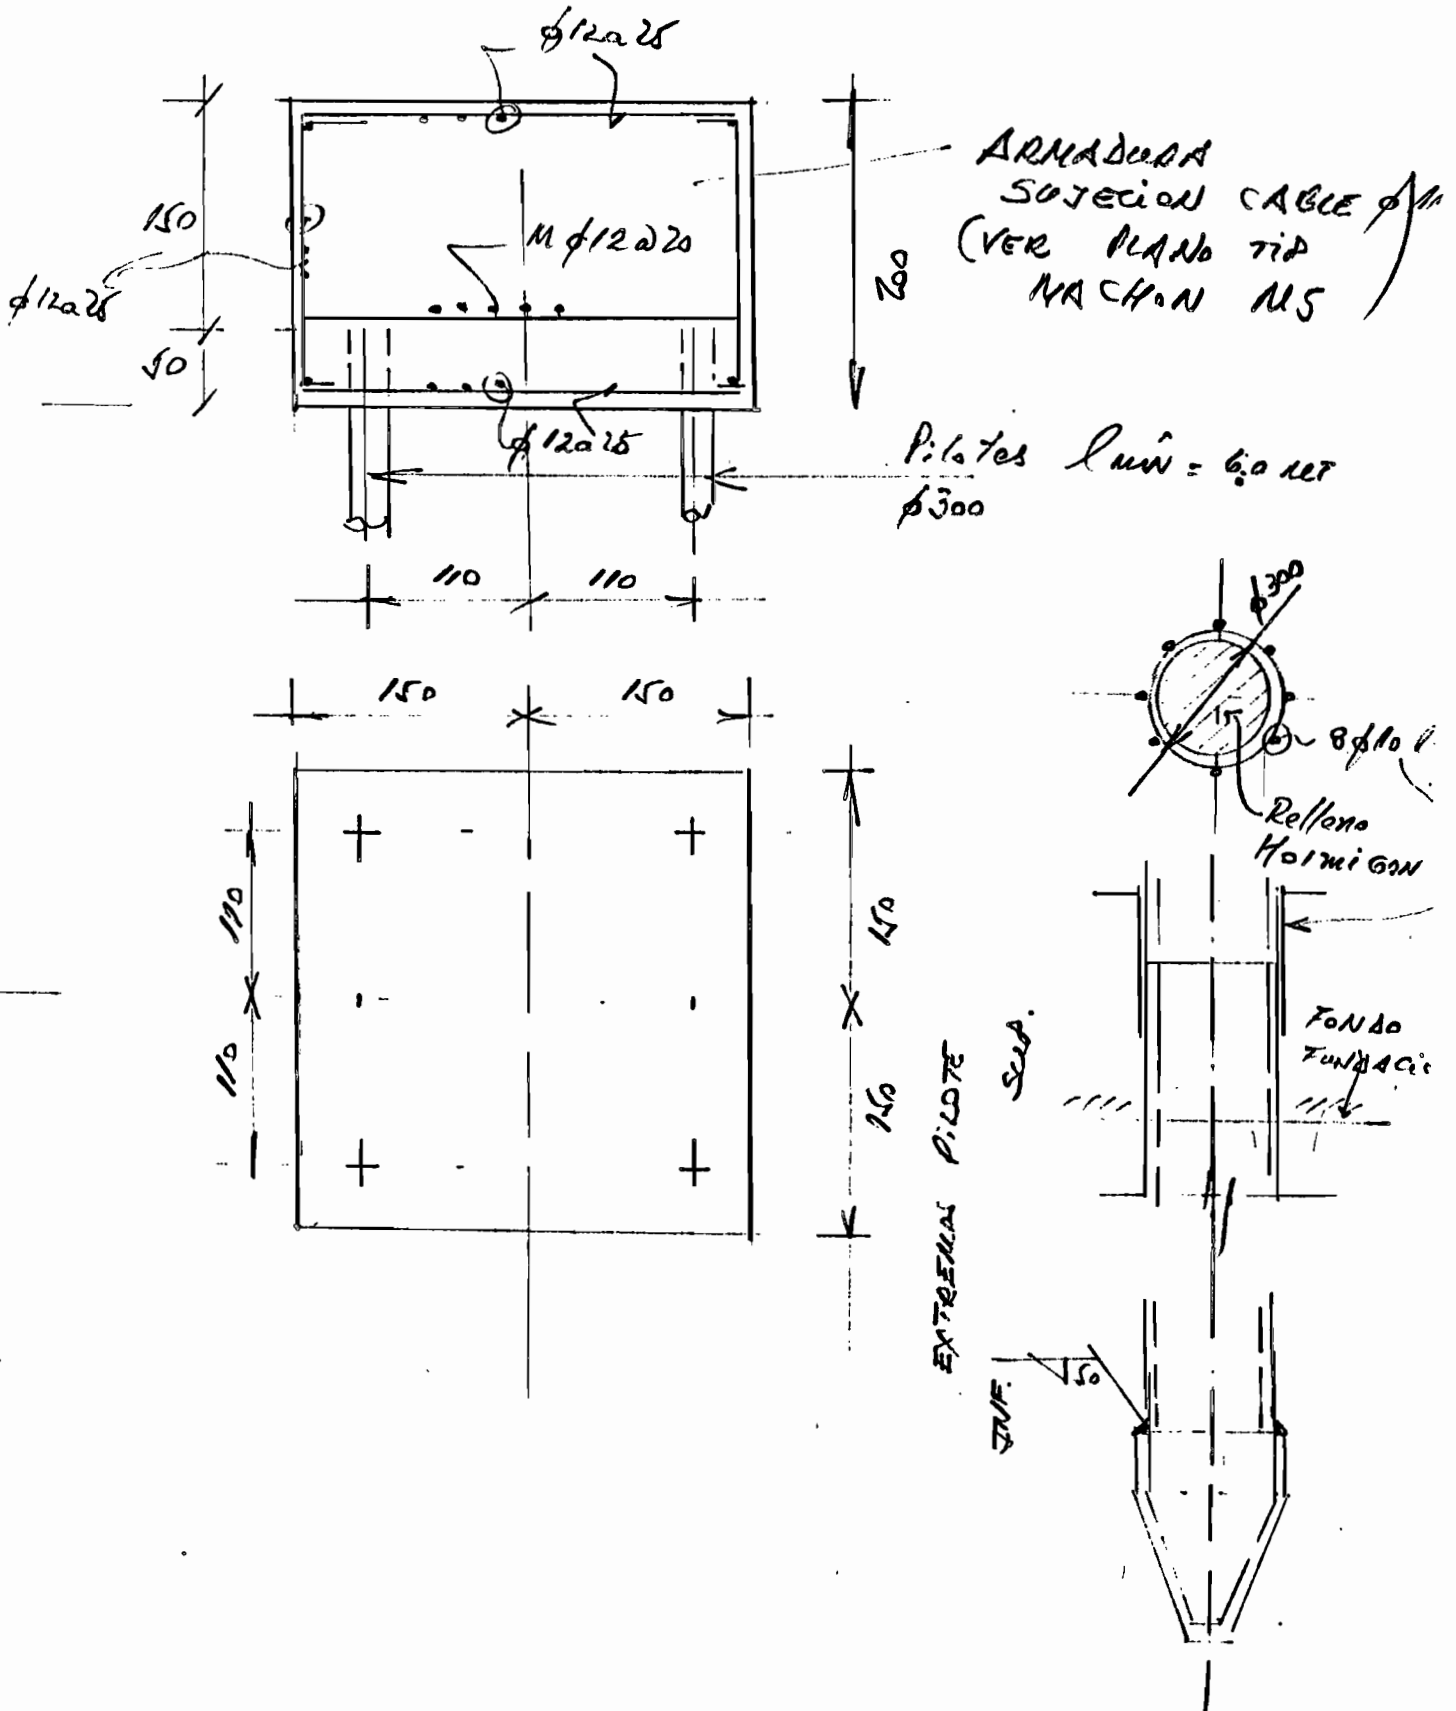 φ12a25
150
φ12a25
50
M φ12a20
200
ARMADURA
SUJECION CABLE φ
(VER PLANO TIP
MACHON M5
φ12a25
Pilotes l min = 6.0 MT
φ300
110 110
150 150
110
110
150
150
φ300
8φ10
Relleno
HormiGON
FONDO
FUNDACi
EXTREMOS PiLOTE
SUP.
INF.
50